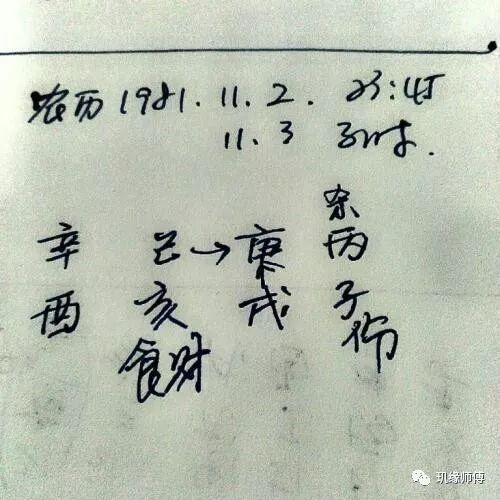 农历 1981. 11. 2. 23:45
11. 3 子时.
杀
辛 己→庚 丙
酉 亥 戌 子
食财 伤
玑缘师傅